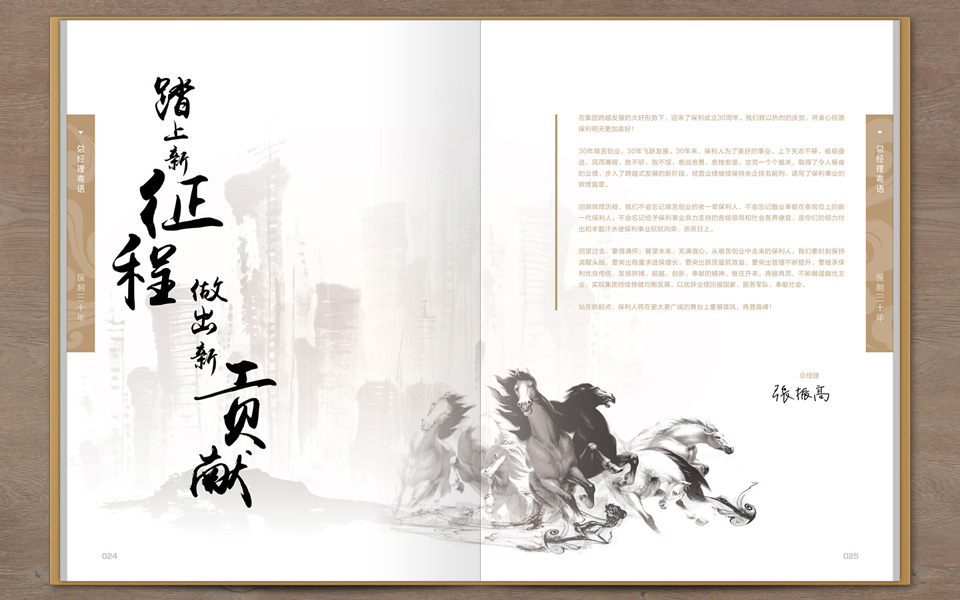 踏上新
征程
做出新
贡献
总经理寄语
保利三十年
024
在集团跨越发展的大好形势下，迎来了保利成立30周年。我们致以热烈的庆贺，并衷心祝愿
保利明天更加美好！
30年艰苦创业，30年飞跃发展。30年来，保利人为了美好的事业，上下矢志不移，砥砺奋
进，风雨兼程，胜不骄，败不馁，愈战愈勇，愈挫愈坚，攻克一个个难关，取得了令人振奋
的业绩，步入了跨越式发展的新阶段，经营业绩继续保持央企排名前列，谱写了保利事业的
辉煌篇章。
回顾辉煌历程，我们不会忘记艰苦创业的老一辈保利人，不会忘记敬业奉献在各岗位上的新
一代保利人，不会忘记给予保利事业鼎力支持的各级领导和社会各界便宜，是你们的倾力付
出和辛勤汗水使保利事业欣欣向荣，蒸蒸日上。
回望过去，豪情满怀；展望未来，充满信心。从艰苦创业中走来的保利人，我们要时刻保持
清醒头脑，要突出稳重求进保增长，要突出抓质量抓效益，要突出管理不断提升，要继承保
利优良传统，发扬拼搏、超越、创新、奉献的精神，继往开来，再接再厉，不断做强做优主
业，实现集团持续稳健均衡发展，以优异业绩回报国家，服务军队，奉献社会。
站在新起点，保利人将在更大更广阔的舞台上重展雄风，再登高峰！
总经理
張振高
总经理寄语
保利三十年
025